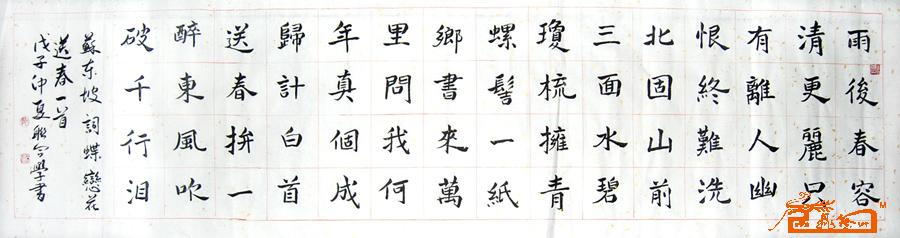 雨後春容
清更麗只
有離人幽
恨終難洗
北固山前
三面水碧
瓊梳擁青
螺髻一紙
鄉書來萬
里問我何
年真個成
歸計白首
送春拚一
醉東風吹
破千行泪
蘇东坡詞蝶戀花
送春一首
戊子仲夏學書